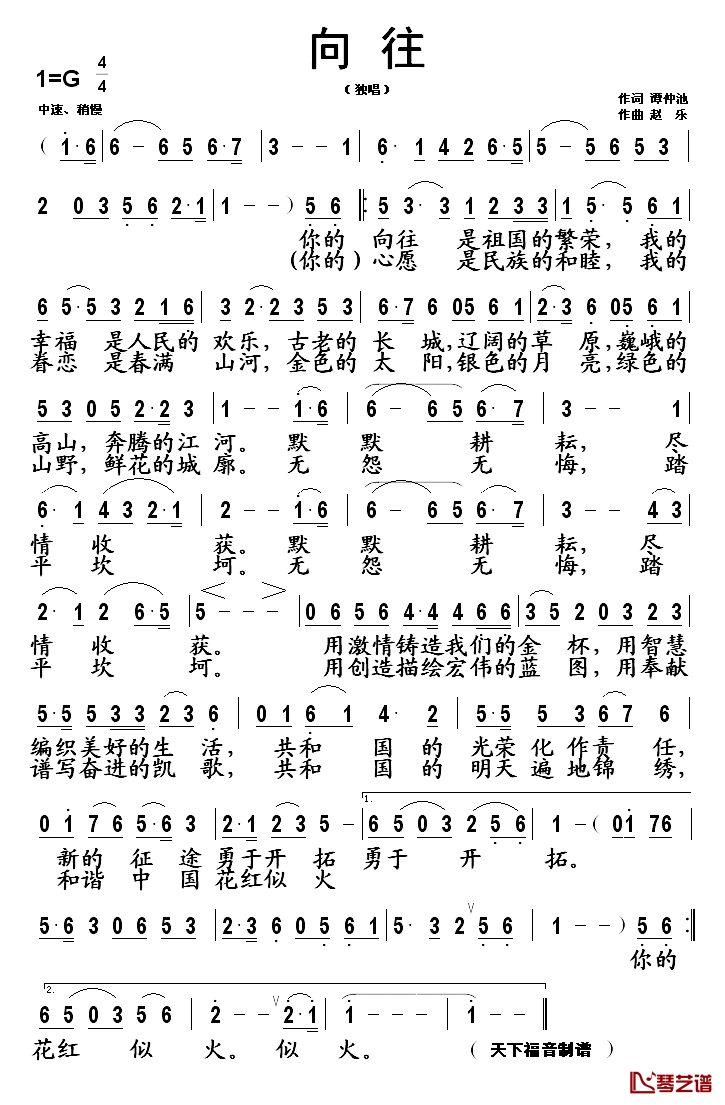 向 往
（独唱）
1=G 4/4
中速、稍慢
作词 谭仲池
作曲 赵 乐
( 1·6 | 6 - 6 5 6·7 | 3 - - 1 | 6· 1 4 2 6·5 | 5 - 5 6 5 3 |
2 0 3 5 6 2·1 | 1 - - ) 5 6 |: 5 3· 3 1 2 3 3 | 1 5· 5 6 1 |
你的 向往 是祖国的繁荣，我的
(你的)心愿 是民族的和睦，我的
6 5·5 3 2 1 6 | 3 2·2 3 5 3 | 6·7 6 05 6 1 | 2·3 6 05 6 1 |
幸福 是人民的 欢乐，古老的 长 城，辽阔的 草 原，巍峨的
眷恋 是春满 山河，金色的 太 阳，银色的 月 亮，绿色的
5 3 0 5 2·2 3 | 1 - - 1·6 | 6 - 6 5 6·7 | 3 - - 1 |
高山，奔腾的江 河。默 默 耕 耘，尽
山野，鲜花的城 廓。无 怨 无 悔，踏
6· 1 4 3 2·1 | 2 - - 1·6 | 6 - 6 5 6·7 | 3 - - 4 3 |
情 收 获。默 默 耕 耘，尽
平 坎 坷。无 怨 无 悔，踏
2· 1 2 6·5 | 5 - - - | 0 6 5 6 4·4 4 6 6 | 3 5 2 0 3 2 3 |
情 收 获。 用激情铸造我们的金 杯，用智慧
平 坎 坷。 用创造描绘宏伟的蓝 图，用奉献
5·5 5 3 3 2 3 6 | 0 1 6 1 4· 2 | 5·5 5 3 6 7 6 |
编织美好的生 活，共和 国 的 光荣 化 作责 任，
谱写奋进的凯 歌，共和 国 的 明天 遍 地锦 绣，
0 1 7 6 5·6 3 | 2·1 2 3 5 - | 1. 6 5 0 3 2 5 6 | 1 - ( 01 76 |
新的 征 途 勇于开 拓 勇于 开 拓。
和谐 中 国 花红似 火
5·6 3 0 6 5 3 | 2·3 6 0 5 6 1 | 5· 3 2 ∨ 5 6 | 1 - - ) 5 6 :|
你的
2. 6 5 0 3 5 6 | 2 - - ∨ 2·1 | 1 - - - | 1 - - ||
花红 似 火。 似 火。 （ 天下福音制谱 ）
琴艺谱